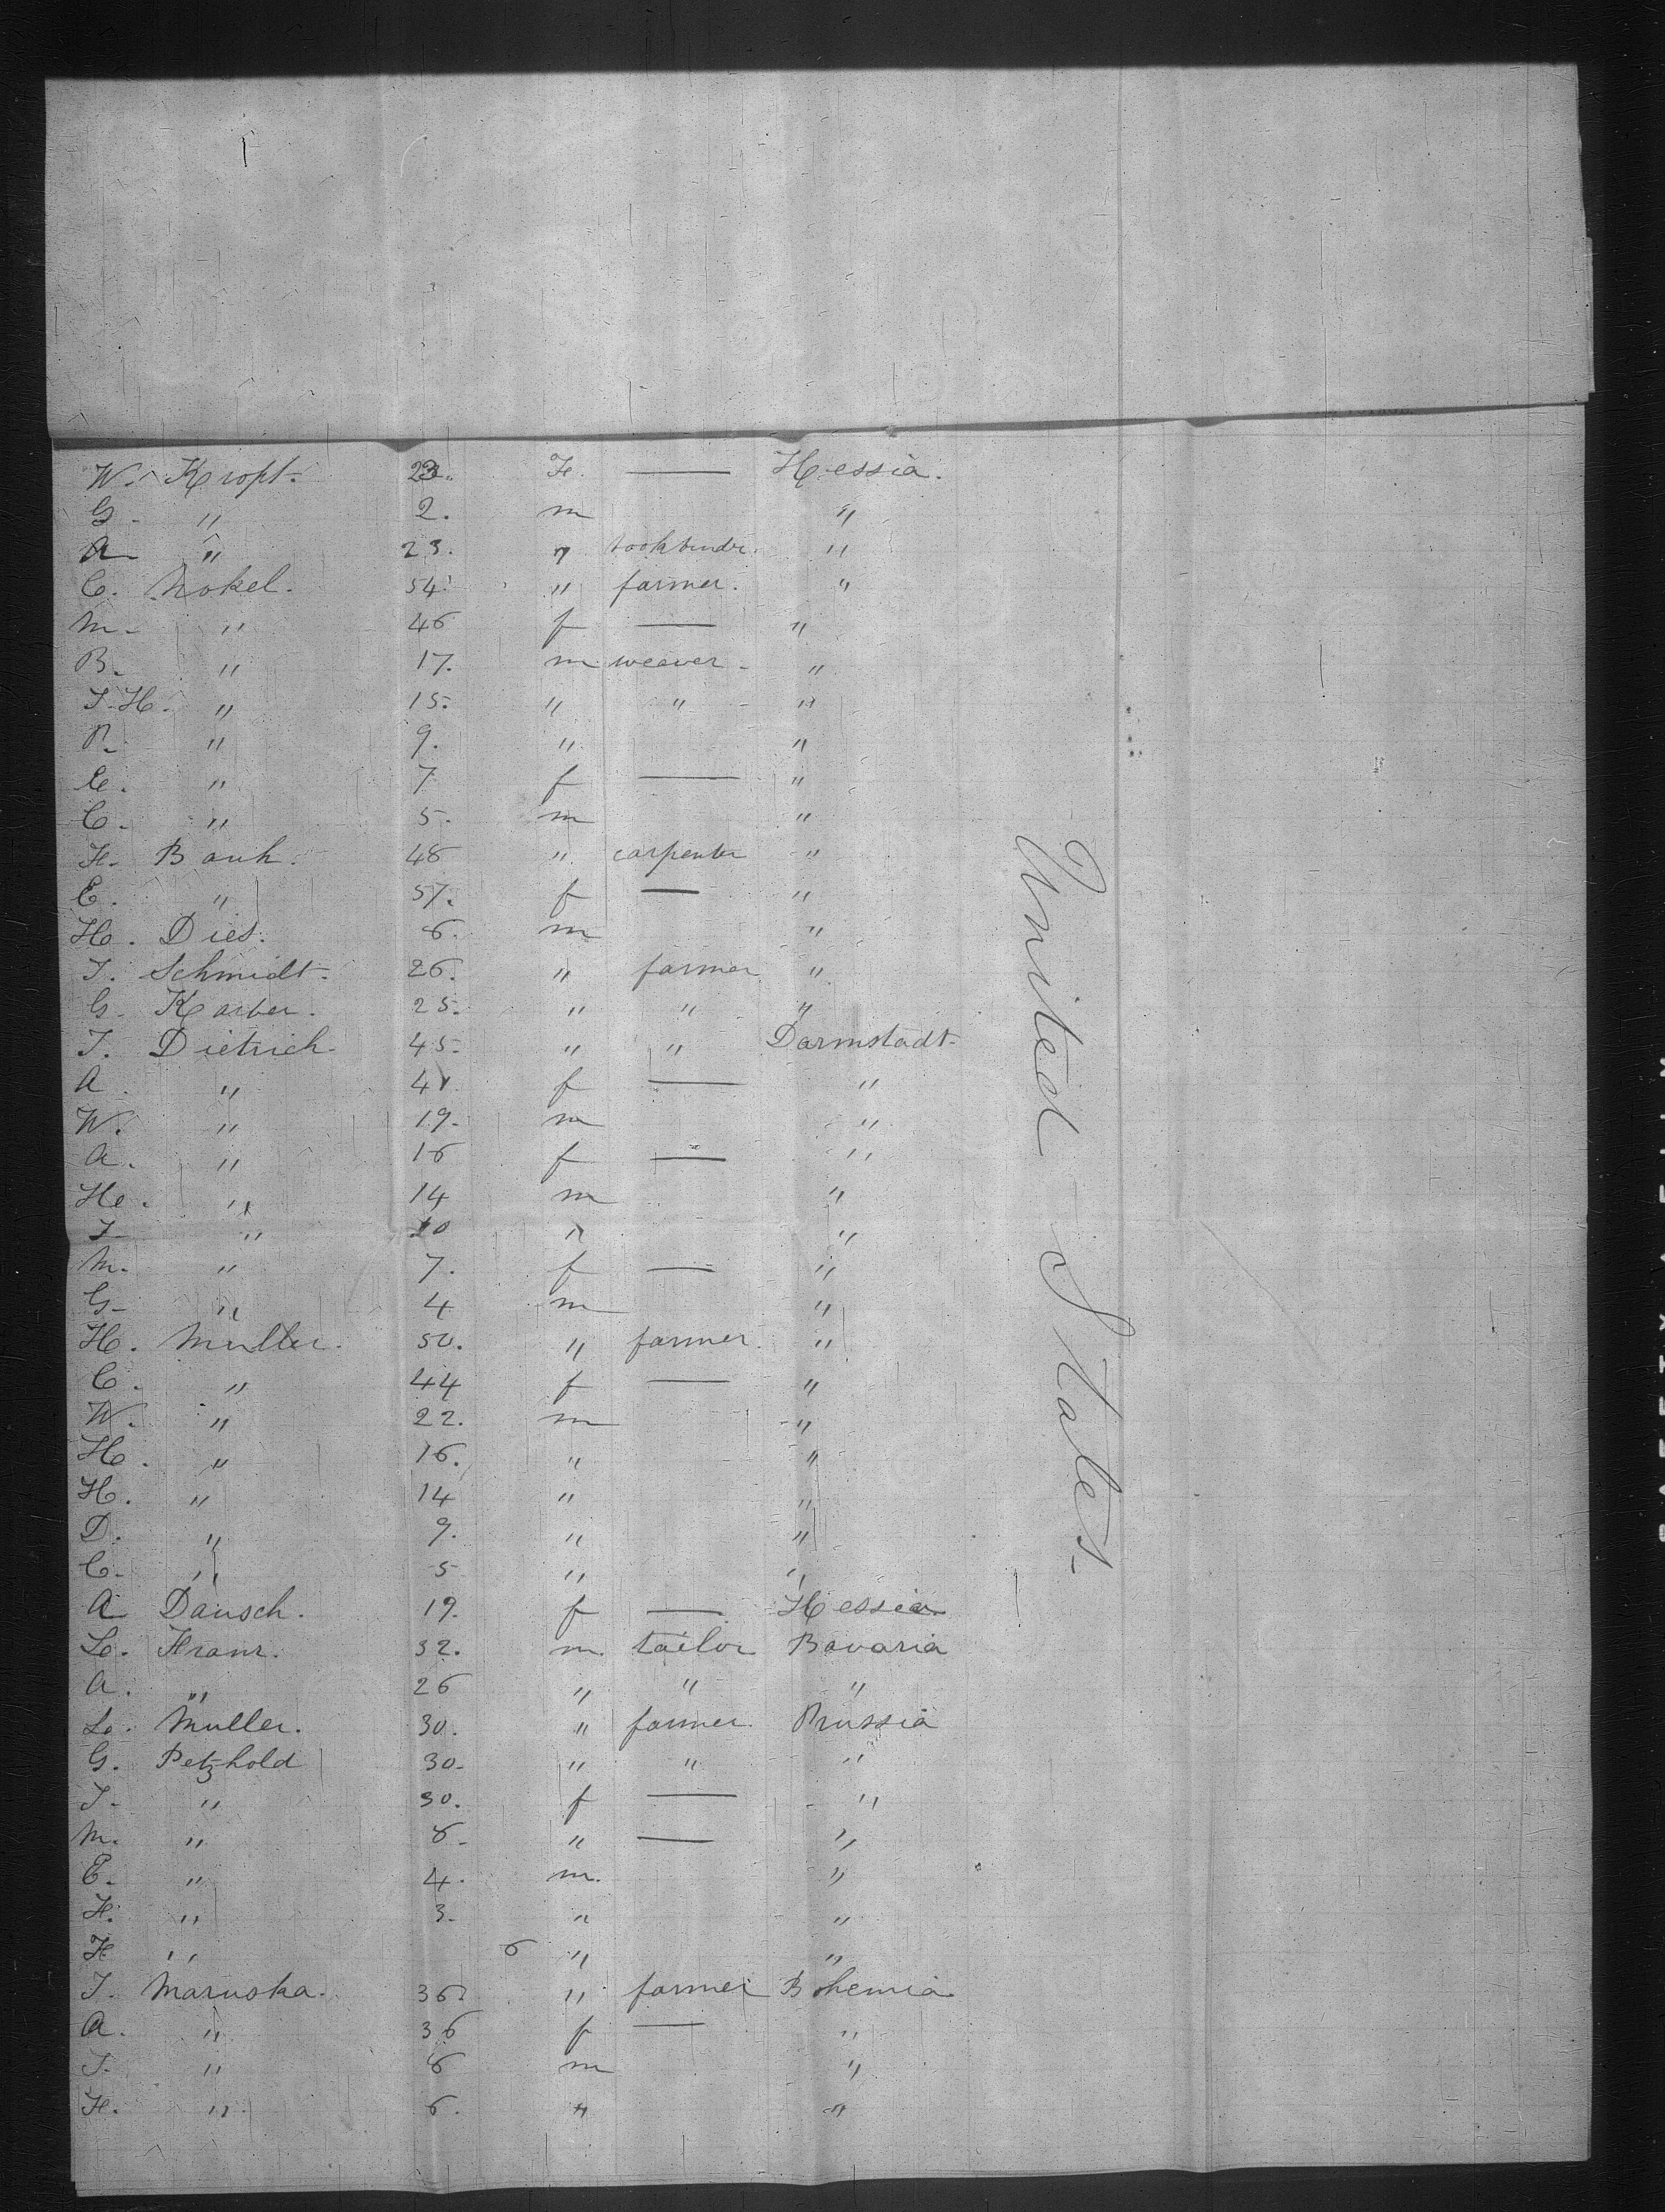 W. Kropt. 23. F. — Hessia.
G. " 2. m "
A " 23. " bookbinder. "
C. Nokel. 54 " farmer. "
M. " 46 f — "
B. " 17. m weaver "
J. H. " 15. " " "
P. " 9. " "
E. " 7 f — "
C. " 5. m "
F. Bauh. 46 " carpenter "
E. " 57. f — "
H. Dies. 6. m "
J. Schmidt. 26. " farmer "
G. Karber. 25. " " "
J. Dietrich. 45. " " Darmstadt.
A. " 41 f — "
W. " 19. m "
A. " 16 f — "
H. " 14 m "
J. " 10 " "
M. " 7. f — "
G. " 4 m "
H. Muller. 50. " farmer. "
C. " 44 f — "
W. " 22. m "
H. " 16. " "
H. " 14 " "
D. " 9. " "
C. " 5 " "
A Dausch. 19. f — Hessia.
L. Franr. 32. m. tailor Bavaria
A. " 26 " " "
L. Muller. 30. " farmer. Prussia
G. Petzhold 30. " " "
J. " 30. f — "
M. " 8. " — "
E. " 4. m. "
F. " 3. " "
F " 6 " "
J. Maruska. 36 " farmer Bohemia.
A. " 36 f — "
J. " 8 m "
F. " 6. " "
United States.